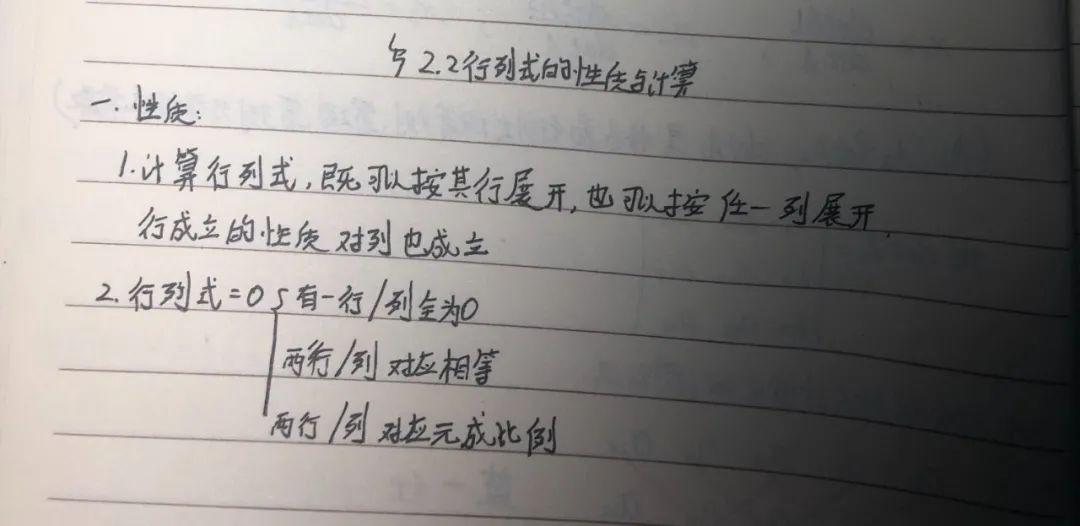 §2.2行列式的性质与计算
一.性质:
1.计算行列式,既可以按其行展开,也可以按任一列展开.
行成立的性质对列也成立
2.行列式=0{有一行/列全为0
两行/列对应相等
两行/列对应元成比例